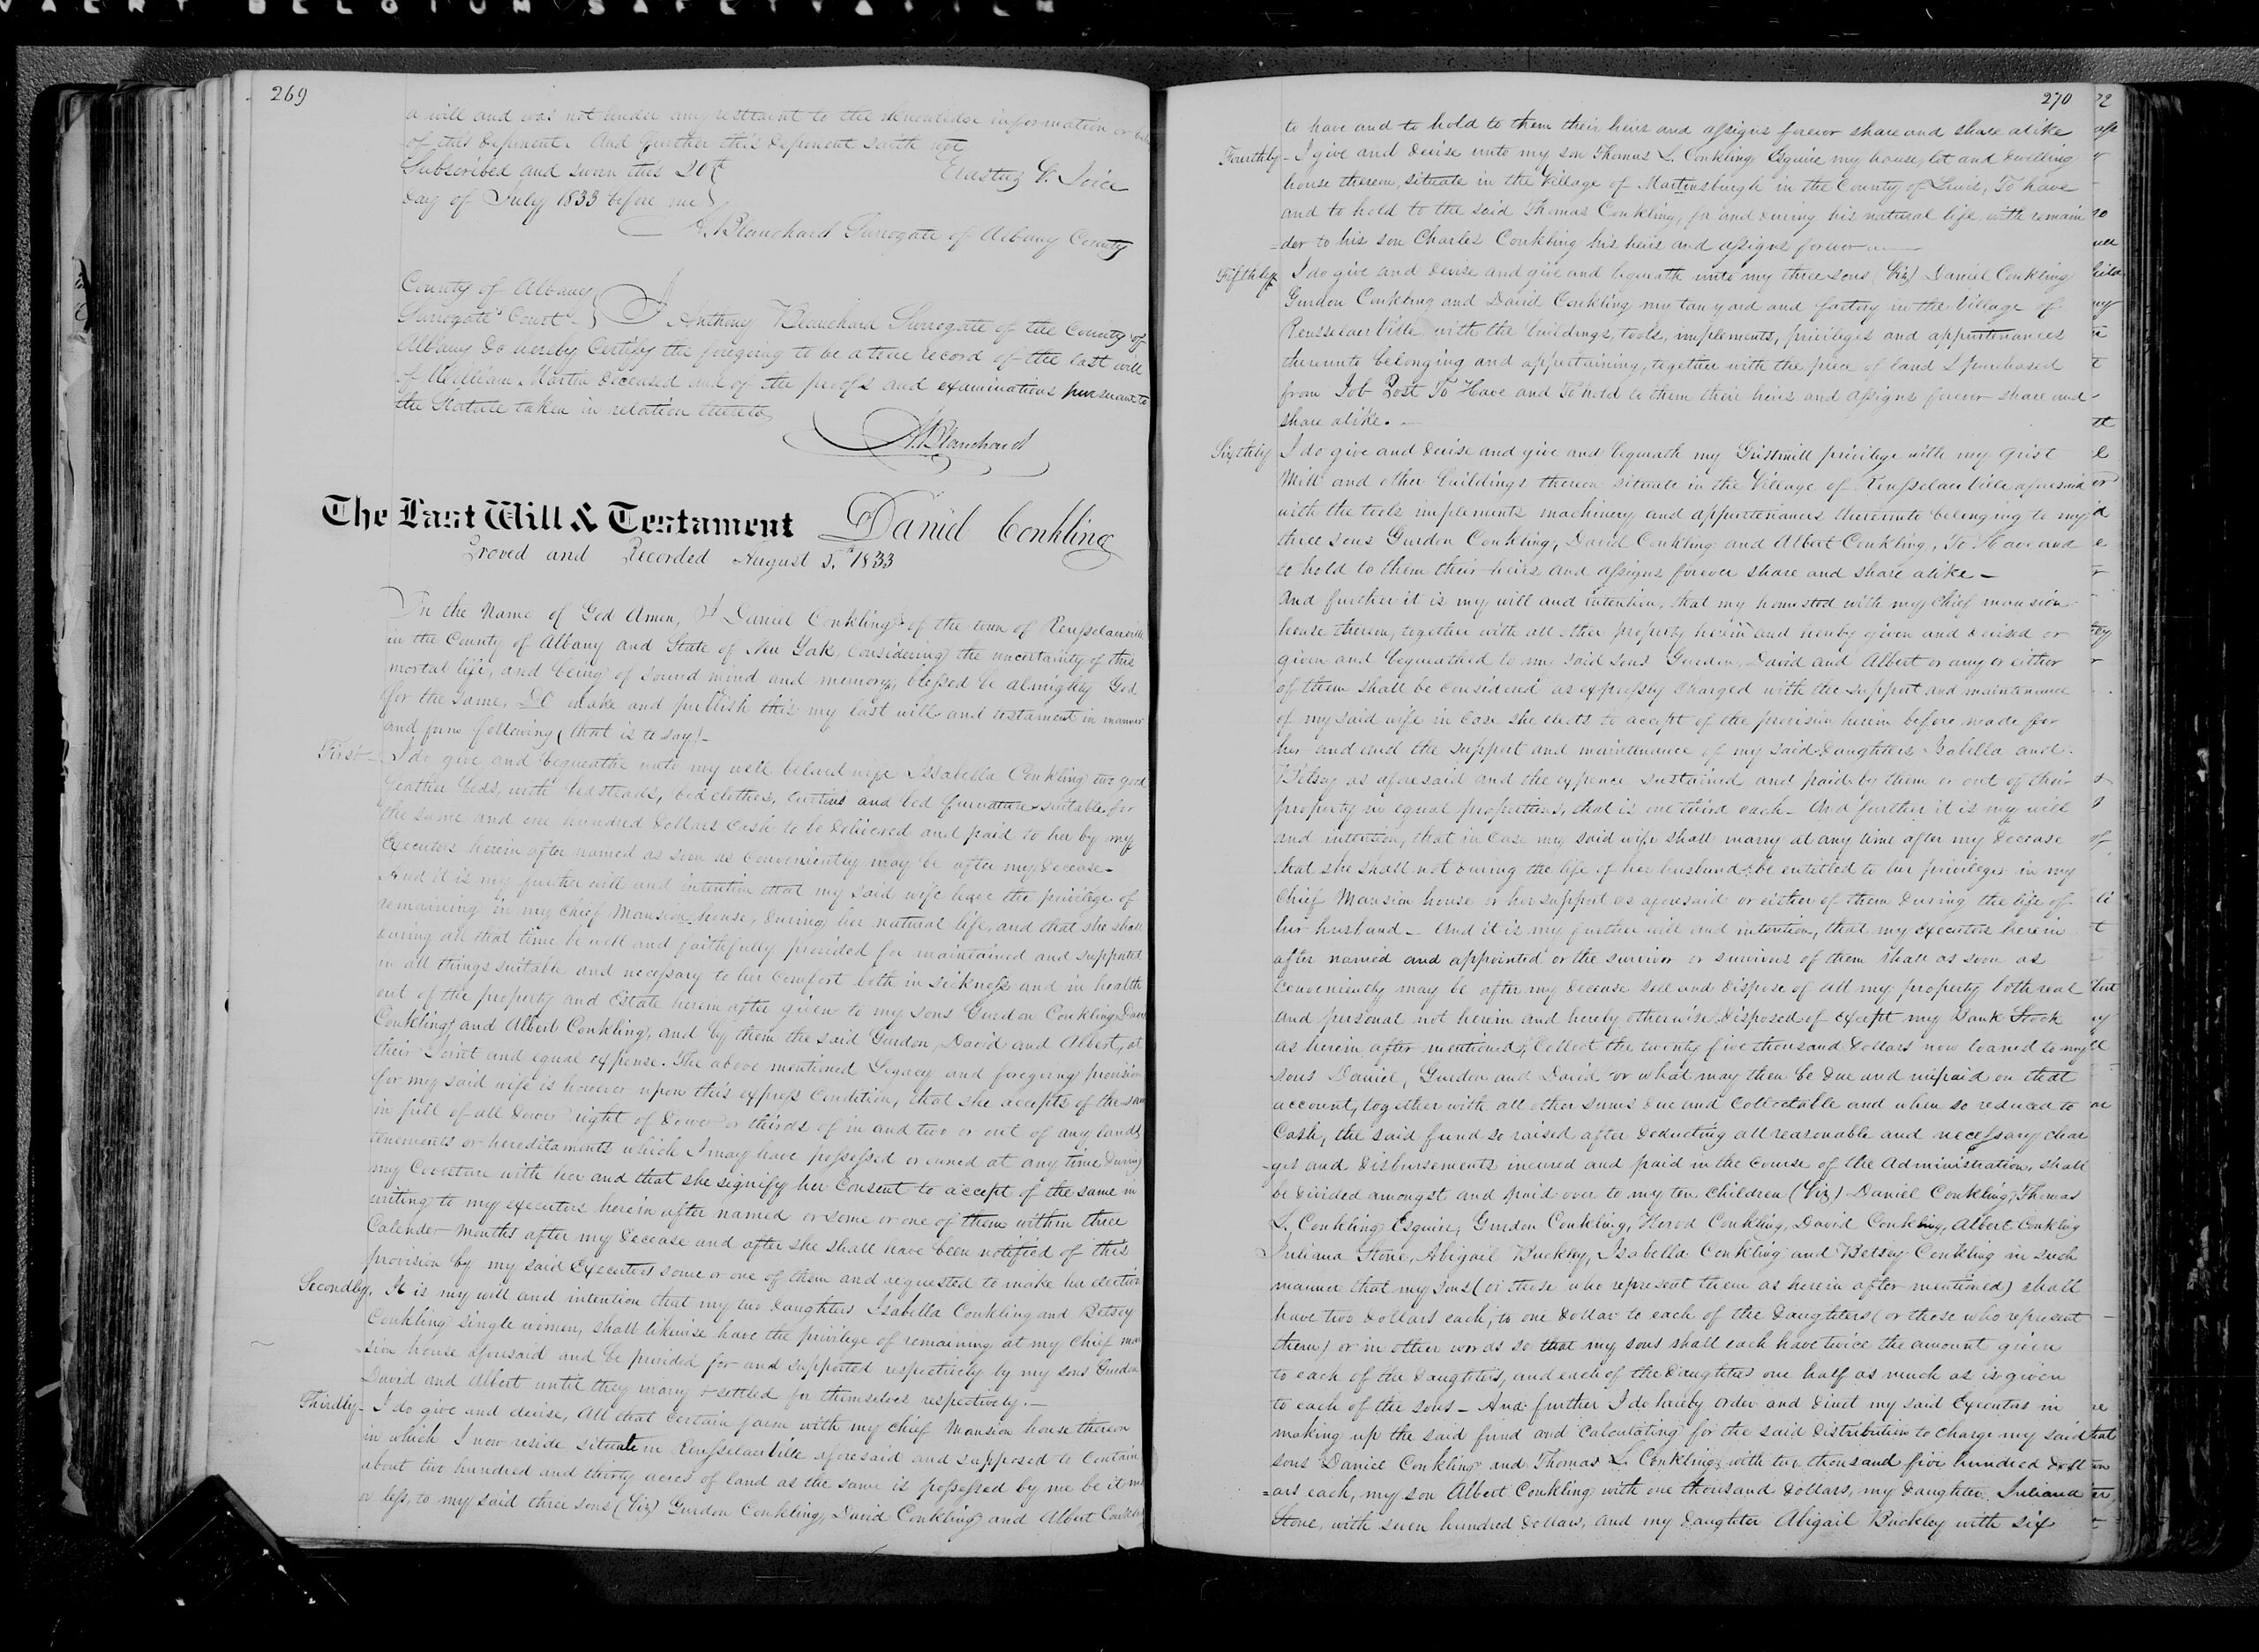 269
a will and was not under any restraint to the knowledge information or
of this deponent. And further this deponent saith not
Subscribed and sworn this 20th
day of July 1833 before me
A. Blanchard Surrogate of Albany County
County of Albany
Surrogate's Court I Anthony Blanchard Surrogate of the County of
Albany do hereby Certify the foregoing to be a true record of the last will
of William Martin deceased and of the proofs and examinations pursuant to
the Statute taken in relation thereto
A. Blanchard
The Last Will & Testament Daniel Conkling
Proved and Recorded August 5. 1833
In the Name of God Amen, I Daniel Conkling of the town of Rensselaerville
in the County of Albany and State of New York, Considering the uncertainty of this
mortal life, and being of sound mind and memory, blessed be almighty God
for the same, DO make and publish this my last will and testament in manner
and form following (that is to say)-
First- I do give and bequeathe unto my well beloved wife Issabella Conkling two good
feather beds, with bedsteads, bed clothes, curtins and bed furnature suitable for
the same and one hundred dollars Cash to be delivered and paid to her by my
Executors herein after named as soon as Conveniently may be after my decease-
And it is my further will and intention that my said wife have the privilege of
remaining in my chief Mansion house, during her natural life, and that she shall
during all that time be well and faithfully provided for maintained and supported
in all things suitable and necessary to her comfort both in sickness and in health
out of the property and Estate herein after given to my sons Gurdon Conkling David
Conkling and Albert Conkling, and by them the said Gurdon, David and Albert, at
their Joint and equal expense. The above mentioned Legacy and foregoing provision
for my said wife is however upon this express Condition, that she accepts of the same
in full of all dower right of Dower or thirds of in and two or out of any lands
tenements or hereditaments which I may have possessed or owned at any time during
my Coverture with her and that she signify her Consent to accept of the same in
writing to my executors herein after named or some or one of them within three
Calender months after my decease and after she shall have been notified of this
provision by my said Executors some or one of them and requested to make her election
Secondly, It is my will and intention that my two daughters Isabella Conkling and Betsey
Conkling single women, shall likewise have the privilege of remaining at my chief man
sion house aforesaid and be provided for and supported respectively by my sons Gurdon
David and Albert until they marry & settled for themselves respectively.-
Thirdly- I do give and devise, all that certain farm with my chief Mansion house thereon
in which I now reside situate in Rensselaerville aforesaid and supposed to contain
about two hundred and thirty acres of land as the same is possessed by me be it more
or less, to my said three sons (Viz) Gurdon Conkling, David Conkling and Albert Conkling
270
to have and to hold to them their heirs and assigns forever share and share alike
Fourthly- I give and devise unto my son Thomas L. Conkling Esquire my house, lot and dwelling
house thereon, situate in the Village of Martinsburgh in the County of Lewis, To have
and to hold to the said Thomas Conkling, for and during his natural life with remain
=der to his son Charles Conkling his heirs and assigns forever
Fifthly I do give and devise and give and bequeath unto my three sons (Viz) Daniel Conkling
Gurdon Conkling and David Conkling my tan yard and factory in the Village of
Rensselaerville with the buildings, tools, implements, privileges and appurtenances
thereunto belonging and appertaining, together with the piece of land I purchased
from Job Post To Have and To hold to them their heirs and assigns forever share and
share alike.
Sixthly I do give and devise and give and bequeath my Gristmill privilege with my grist
Mill and other buildings thereon situate in the Village of Rensselaerville aforesaid
with the tools implements machinery and appurtenances thereunto belonging to my
three sons Gurdon Conkling, David Conkling and Albert Conkling, To Have and
to hold to them their heirs and assigns forever share and share alike-
And further it is my will and intention, that my homestead with my chief mansion
house thereon, together with all other property herein and hereby given and devised or
given and bequeathed to my said sons Gurdon, David and Albert or any or either
of them shall be considered as expressly charged with the support and maintenance
of my said wife in case she elects to accept of the provision herein before made for
her and and the support and maintenance of my said Daughters Isabella and
Betsey as aforesaid and the expence sustained and paid by them or out of their
property in equal proportions, that is one third each- And further it is my will
and intention, that in case my said wife shall marry at any time after my decease
that she shall not during the life of her husband be entitled to her privileges in my
Chief Mansion house or her support as aforesaid or either of them during the life of
her husband- And it is my further will and intention, that my executors herein
after named and appointed or the survivor or survivors of them shall as soon as
Conveniently may be after my decease sell and dispose of all my property both real
and personal not herein and hereby otherwise disposed of except my Bank Stock
as herein after mentioned, Collect the twenty five thousand dollars now loaned to my
sons Daniel, Gurdon and David or what may then be due and unpaid on that
account, together with all other sums due and Collectable and when so reduced to
Cash, the said fund so raised after deducting all reasonable and necessary char
-ges and disbursements incured and paid in the course of the administration, shall
be divided amongst and paid over to my ten children (Viz) Daniel Conkling, Thomas
L. Conkling Esquire, Gurdon Conkling, Herod Conkling, David Conkling, Albert Conkling
Juliana Stone, Abigail Buckley, Isabella Conkling and Betsey Conkling in such
manner that my sons (or those who represent them as herein after mentioned) shall
have two dollars each, to one dollar to each of the daughters (or those who represent
them) or in other words so that my sons shall each have twice the amount given
to each of the daughters, and each of the daughters one half as much as is given
to each of the sons- And further I do hereby order and direct my said Executors in
making up the said fund and calculating for the said distribution to charge my said
sons Daniel Conkling and Thomas L. Conkling with two thousand five hundred doll
=ars each, my son Albert Conkling with one thousand dollars, my daughter Juliana
Stone, with seven hundred dollars, and my daughter Abigail Buckley with six